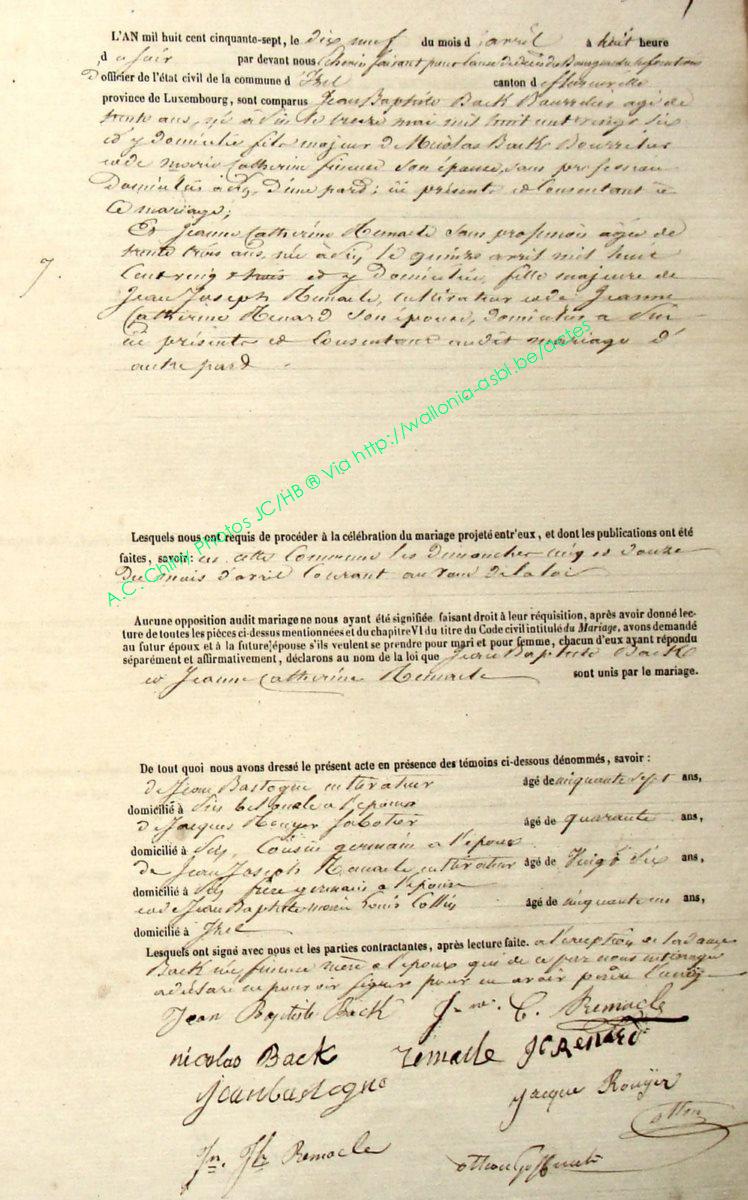 L'AN mil huit cent cinquante-sept, le dix neuf du mois d'avril à huit heure
d u soir par devant nous Echevin faisant pour cause de décès de Bourgmestre les fonctions
D'officier de l'état civil de la commune d'Izel canton de Florenville
province de Luxembourg, sont comparus Jean Baptiste Back Bourrelier agé de
trente ans, né à le treize mai mil huit cent vingt six
et y domicilié fils majeur de Nicolas Back Bourrelier
et de Marie Catherine son épouse, sans profession
Domiciliés à d'une part; ici présents et Consentant à
Ce mariage;
Et Jeanne Catherine Remacle sans profession agée de
trente trois ans, née à le quinze avril mil huit
Cent vingt trois et y Domiciliée, fille majeure de
Jean Joseph Remacle, cultivateur et de Jeanne
Catherine Renard son épouse, domiciliés à
ici présents et Consentant audit mariage d'
autre part.
7.
Lesquels nous ont requis de procéder à la célébration du mariage projeté entr'eux, et dont les publications ont été
faites, savoir: en cette Commune les dimanches cinq et douze
Du mois d'avril Courant au vœu de la loi
Aucune opposition audit mariage ne nous ayant été signifiée faisant droit à leur réquisition, après avoir donné lec-
ture de toutes les pièces ci-dessus mentionnées et du chapitre VI du titre du Code civil intitulé du Mariage, avons demandé
au futur époux et à la future épouse s'ils veulent se prendre pour mari et pour femme, chacun d'eux ayant répondu
séparément et affirmativement, déclarons au nom de la loi que Jean Baptiste Back
et Jeanne Catherine Remacle sont unis par le mariage.
De tout quoi nous avons dressé le présent acte en présence des témoins ci-dessous dénommés, savoir :
de Jean Bastogne cultivateur âgé de cinquante sept ans,
domicilié à oncle à l'époux
de Jacques Rouyer Sabotier âgé de quarante ans,
domicilié à Cousin germain à l'époux
de Jean Joseph Remacle cultivateur âgé de Vingt Six ans,
domicilié à frère germain à l'épouse
et de Jean Baptiste Louis âgé de cinquante un ans,
domicilié à Izel
Lesquels ont signé avec nous et les parties contractantes, après lecture faite. à l'exception de la dame
Back née mère à l'époux qui de ce par nous interrogée
a déclaré ne pouvoir signer pour
Jean Baptiste Back Jne. C. Remacle
nicolas Back remacle JC Renard
jean bastogne jacque Rouyer
Jn. Jh. Remacle
A.C. Chiny Photos JC/HB ® Via http://wallonia-asbl.be/actes